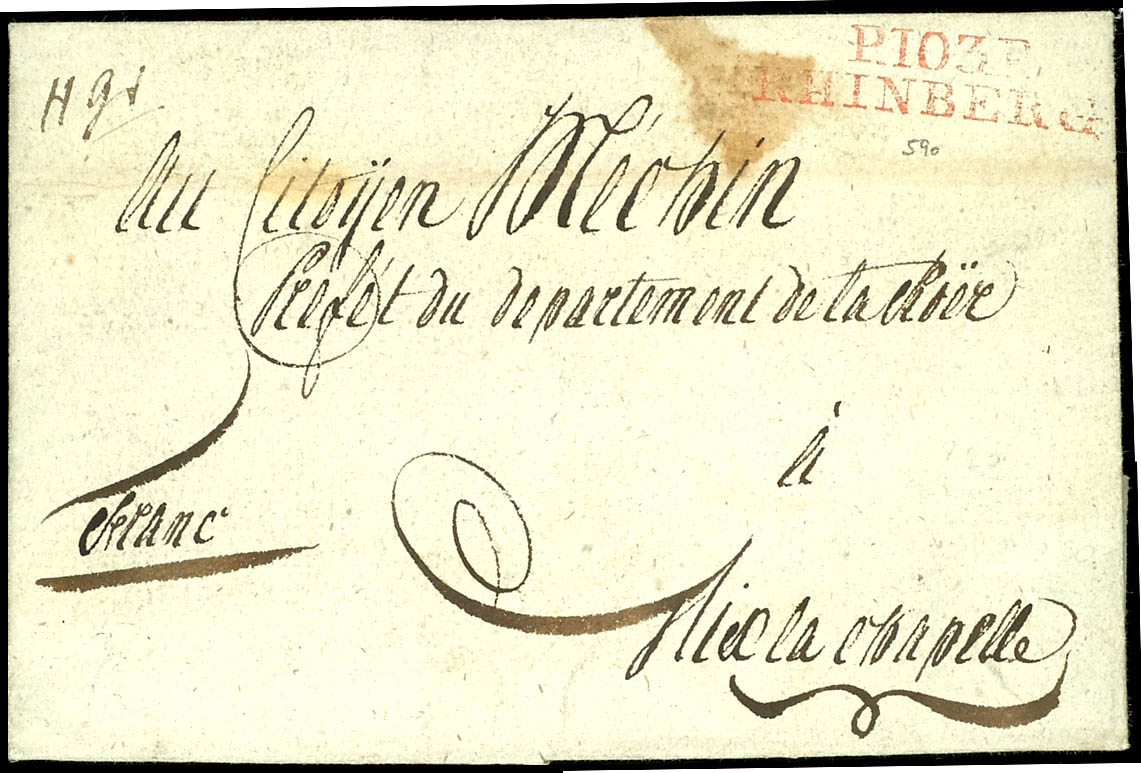 P.103.P.
RHINBERG
590
Au Citoÿen Méchin
Prefét du departement de la Röer
à
franc
Aix la chapelle